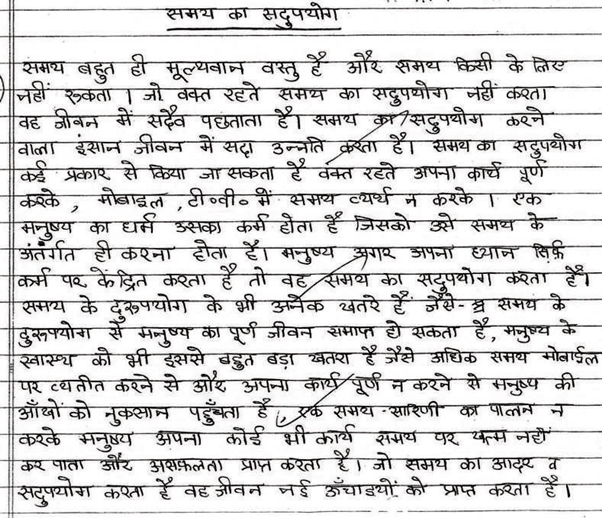 समय का सदुपयोग
समय बहुत ही मूल्यवान वस्तु है और समय किसी के लिए
नहीं रुकता । जो वक्त रहते समय का सदुपयोग नहीं करता
वह जीवन में सदैव पछताता है। समय का सदुपयोग करने
वाला इंसान जीवन में सदा उन्नति करता है। समय का सदुपयोग
कई प्रकार से किया जा सकता है वक्त रहते अपना कार्य पूर्ण
करके , मोबाइल , टी०वी० में समय व्यर्थ न करके । एक
मनुष्य का धर्म उसका कर्म होता है जिसको उसे समय के
अंतर्गत ही करना होता है। मनुष्य अगर अपना ध्यान सिर्फ़
कर्म पर केंद्रित करता है तो वह समय का सदुपयोग करता है।
समय के दुरूपयोग के भी अनेक खतरे हैं जैसे- समय के
दुरूपयोग से मनुष्य का पूर्ण जीवन समाप्त हो सकता है , मनुष्य के
स्वास्थ्य को भी इससे बहुत बड़ा खतरा है जैसे अधिक समय मोबाईल
पर व्यतीत करने से और अपना कार्य पूर्ण न करने से मनुष्य की
आँखों को नुकसान पहुँचता है , एक समय-सारिणी का पालन न
करके मनुष्य अपना कोई भी कार्य समय पर खत्म नहीं
कर पाता और अशफलता प्राप्त करता है। जो समय का आदर व
सदुपयोग करता है वह जीवन नई ऊँचाइयों को प्राप्त करता है।